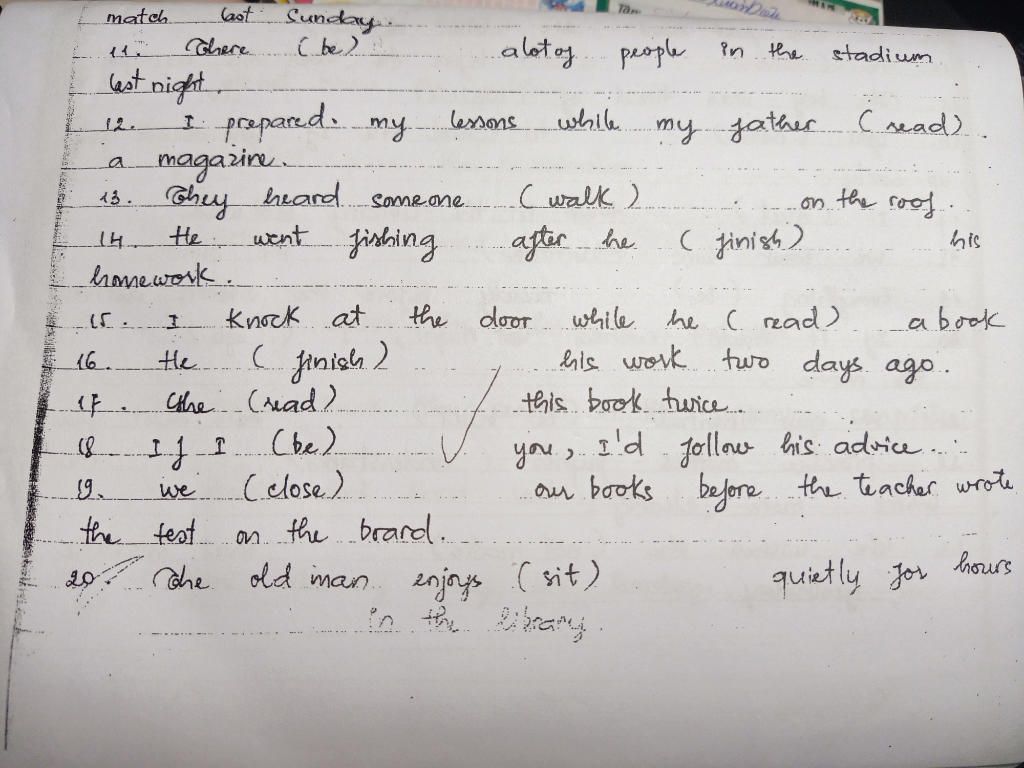 match last Sunday.
11. There (be) a lot of people in the stadium
last night.
12. I prepared my lessons while my father (read)
a magazine.
13. They heard someone (walk) on the roof.
14. He went fishing after he (finish) his
homework.
15. I knock at the door while he (read) a book
16. He (finish) his work two days ago.
17. (read) this book twice.
18 If I (be) you, I'd follow his advice.
19. we (close) our books before the teacher wrote
the test on the board.
20. The old man enjoys (sit) quietly for hours
in the library.